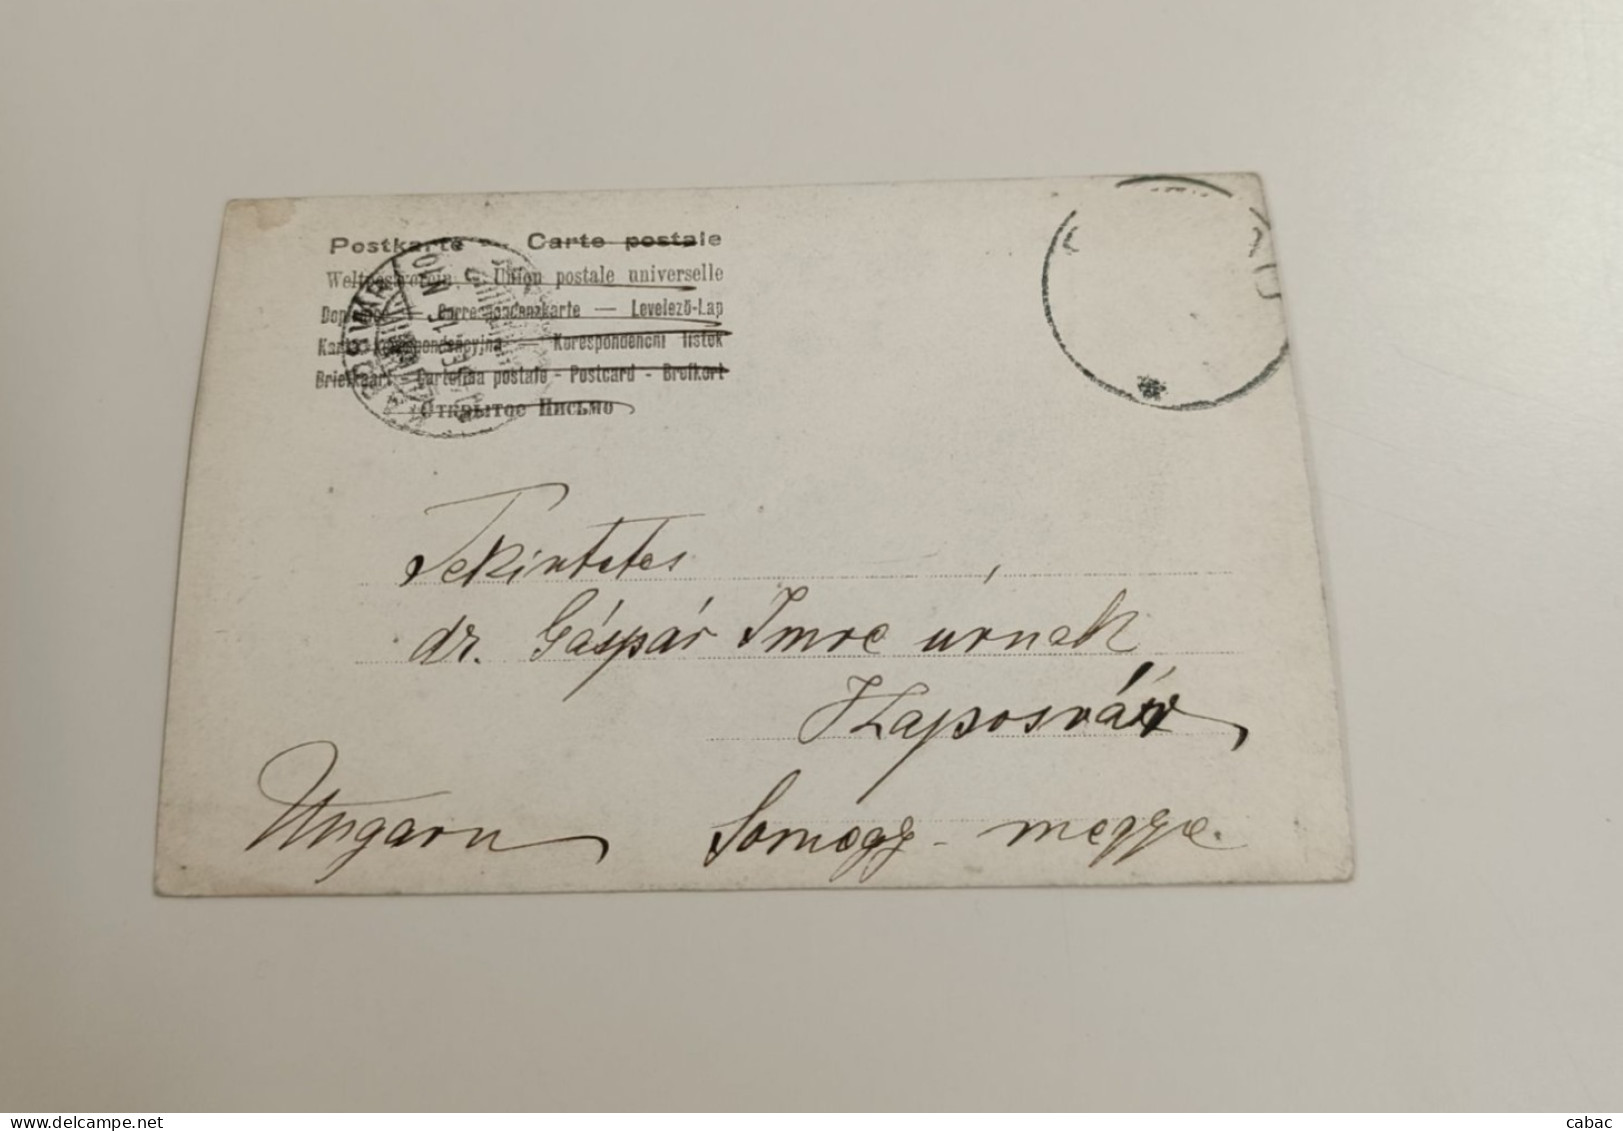 Postkarte — Carte postale
Weltpostverein. — Union postale universelle
Dopisnice — Correspondenzkarte — Levelező-Lap
Karta korespondencyjna — Korespondencni listek
Briefkaart — Cartolina postale - Postcard - Brefkort
Открытое Письмо
KAPOSVÁR
Tekintetes
dr. Gáspár Imre urnak
Kaposvár
Ungarn Somogy-megye.
cabac